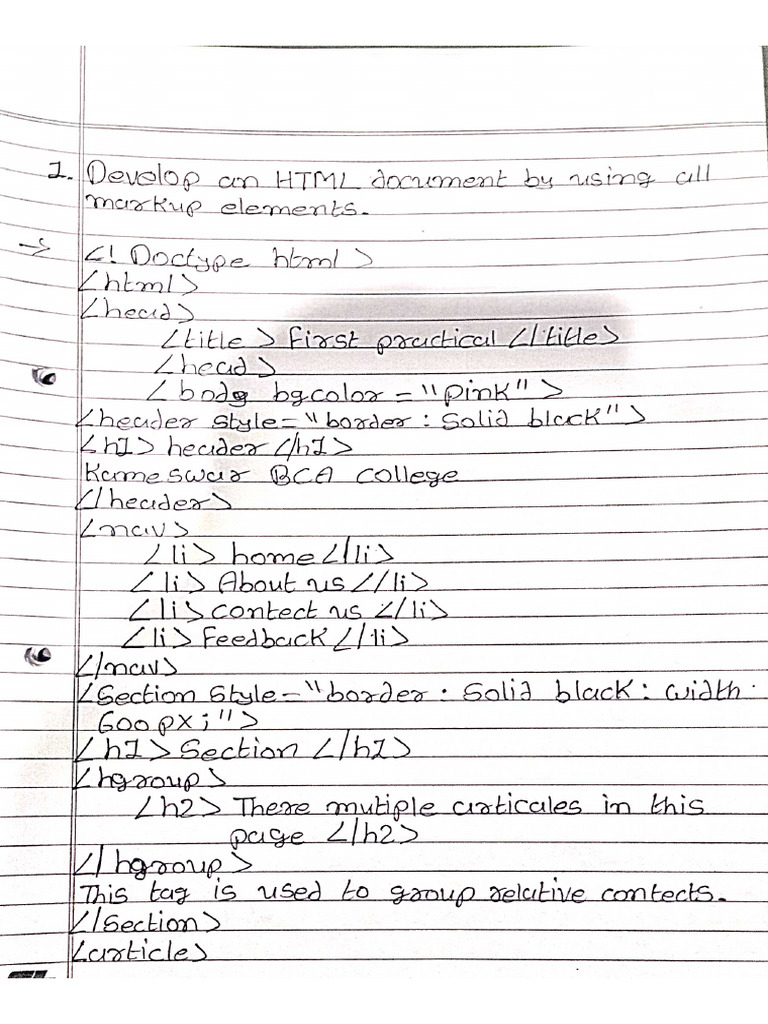 1. Develop an HTML document by using all
markup elements.
→ <! Doctype html >
<html>
<head>
<title > First practical </title>
<head>
<body bgcolor = "pink" >
<header style = "border : Solid black" >
<h1> header </h1>
Kameswar BCA College
</header>
<nav>
<li> home </li>
<li> About us </li>
<li> contect us </li>
<li> Feedback </li>
</nav>
<Section Style = "border : Solid black : width :
600 px ; ">
<h1> Section </h1>
<hgroup>
<h2> There mutiple articales in this
page </h2>
</hgroup>
This tag is used to group relative contects.
</Section>
<article>